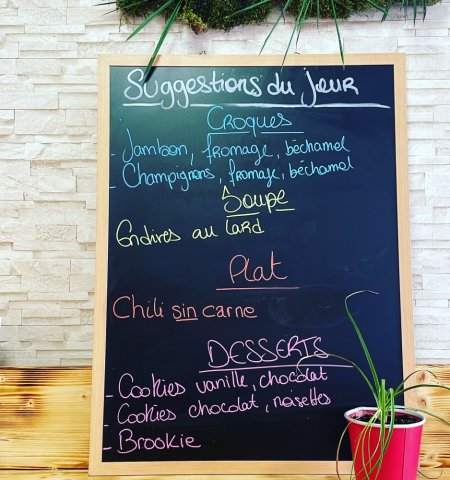 Suggestions du jour
Croques
- Jambon, fromage, béchamel
- Champignons, fromage, béchamel
Soupe
Endives au lard
Plat
Chili sin carne
DESSERTS
- Cookies vanille, chocolat
- Cookies chocolat, noisettes
- Brookie